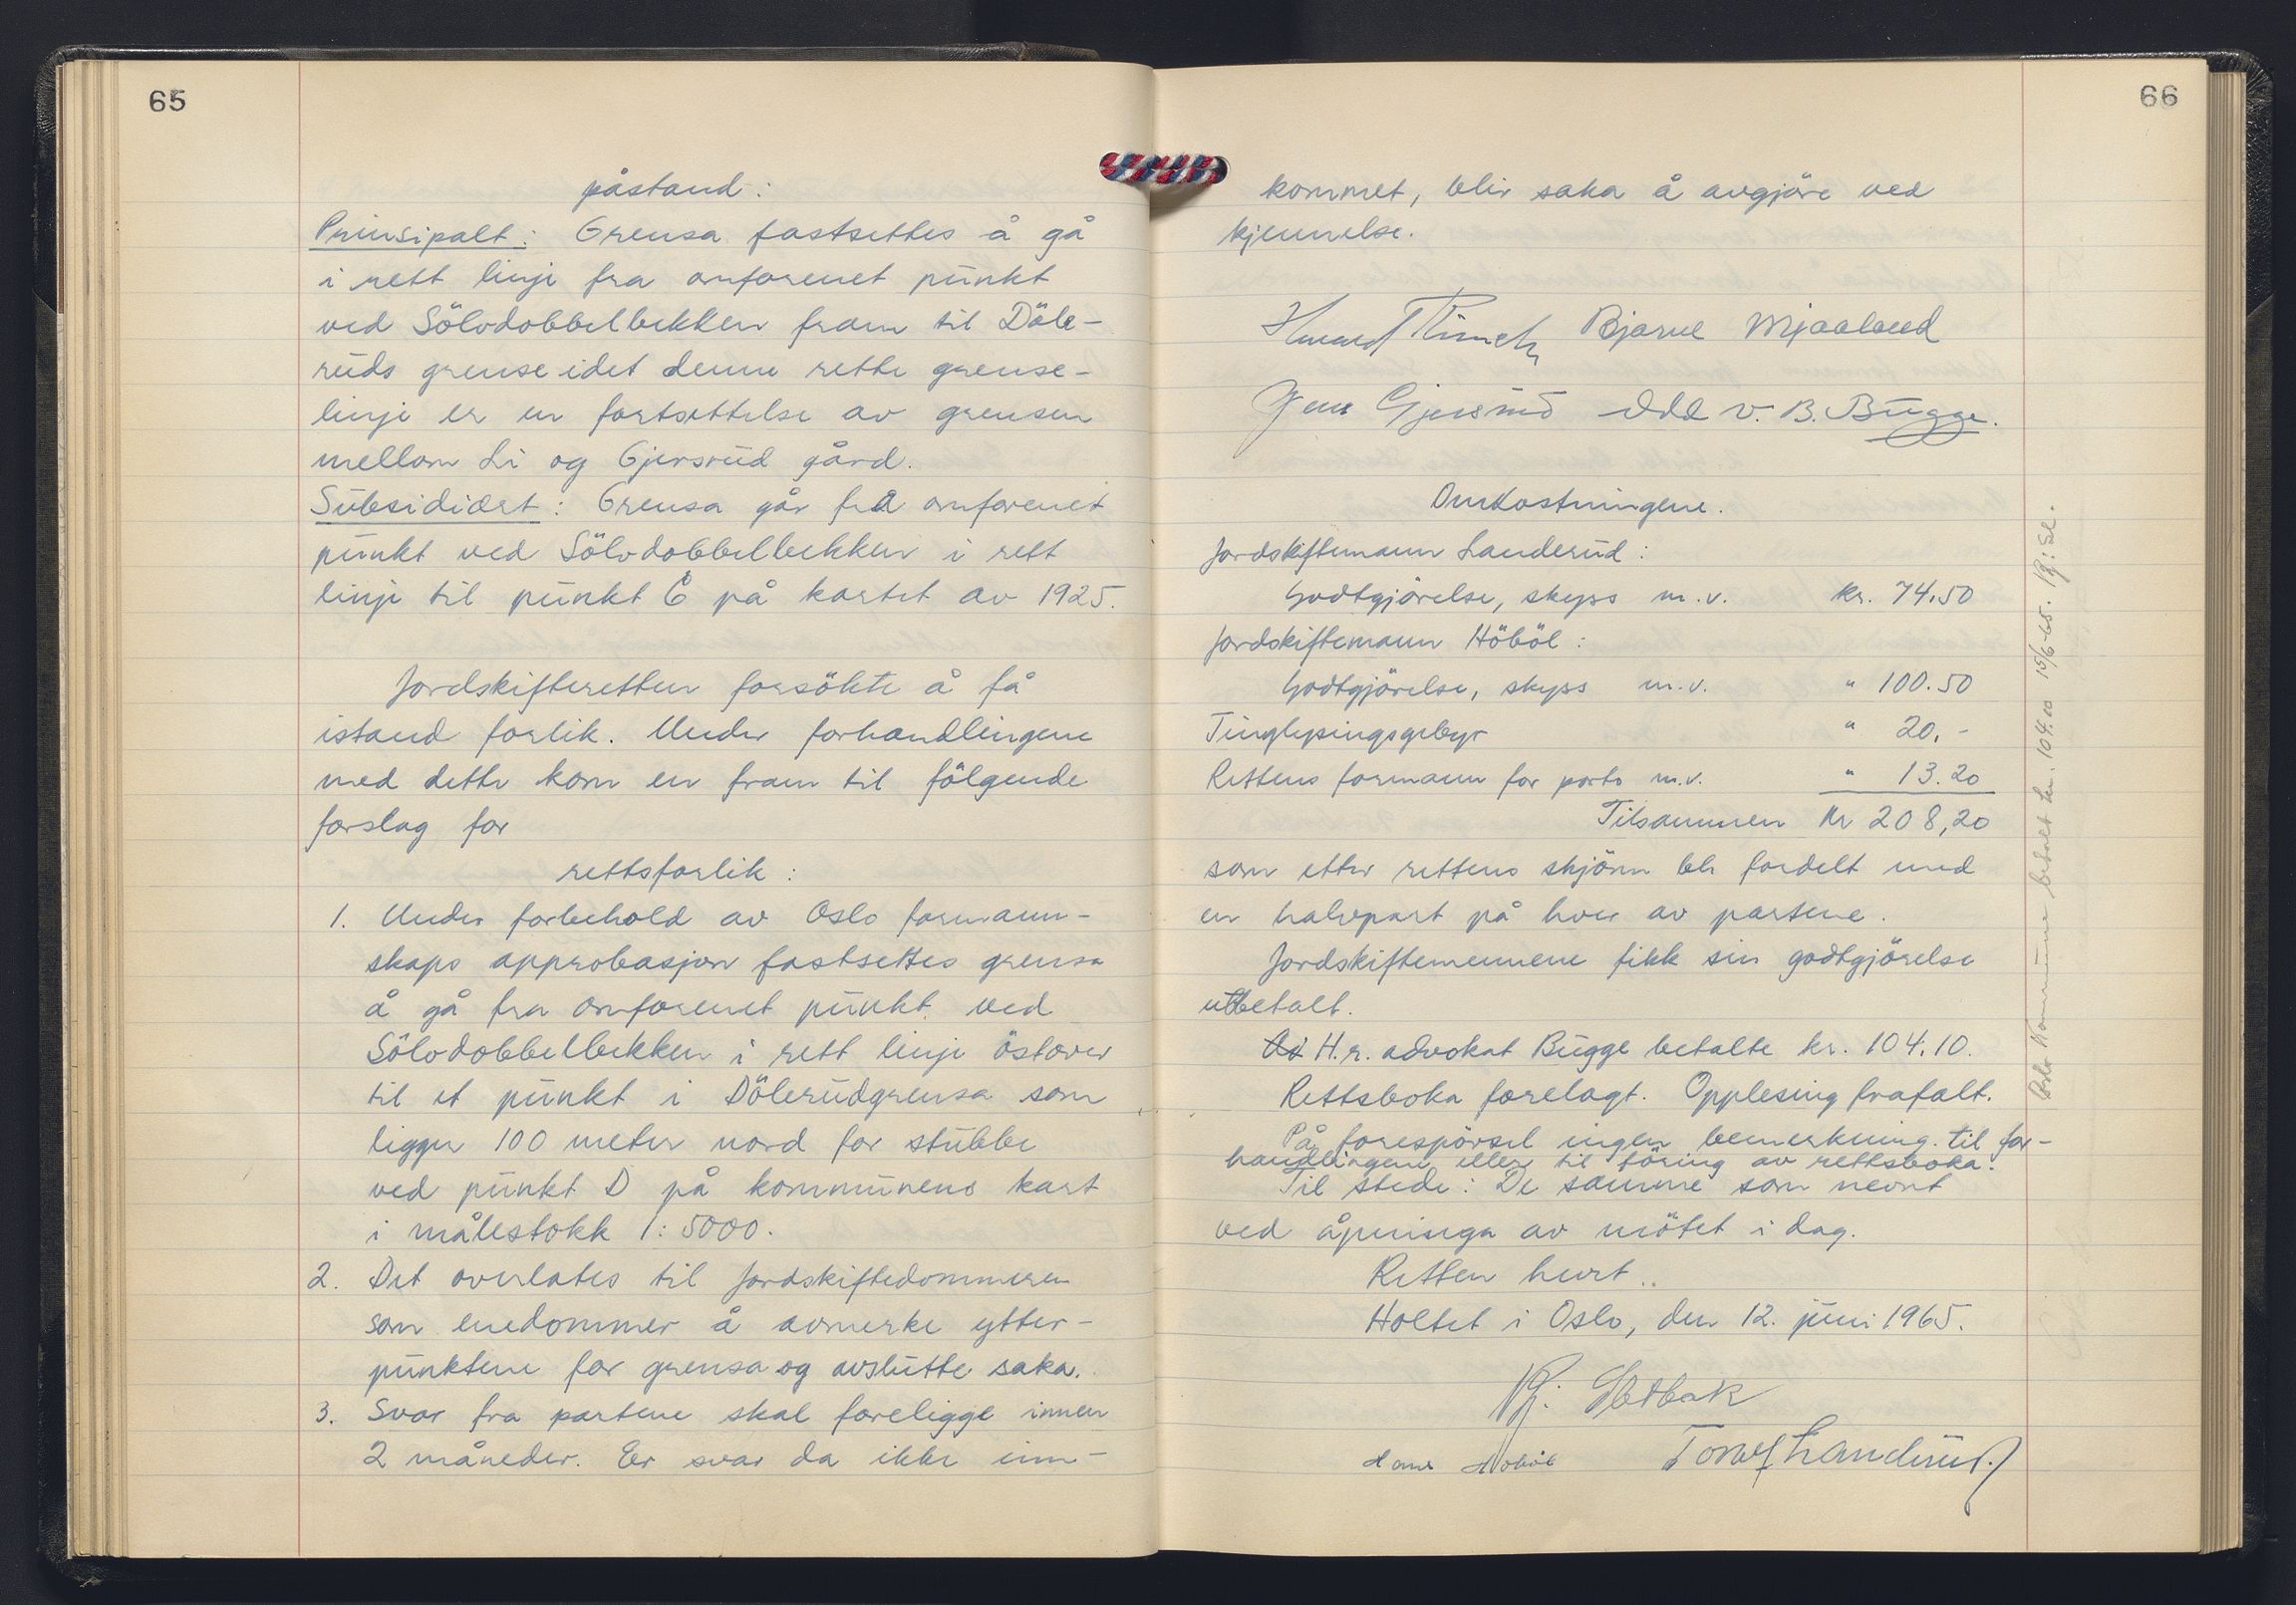 65
påstand:
Prinsipalt: Grensa fastsettes å gå
i rett linje fra omforenet punkt
ved Sölvdobbelbekken fram til Döle-
ruds grense idet denne rette grense-
linje er en fortsettelse av grensen
mellom Li og Gjersrud gård.
Subsidiært: Grensa går fra omforenet
punkt ved Sölvdobbelbekken i rett
linje til punkt Ö på kartet av 1925.
Jordskifteretten forsökte å få
istand forlik. Under forhandlingene
med dette kom en fram til fölgende
forslag for
rettsforlik:
1. Under forbehold av Oslo formann-
skaps approbasjon fastsettes grensa
å gå fra omforenet punkt ved
Sölvdobbelbekken i rett linje östover
til et punkt i Dölerudgrensa som
ligger 100 meter nord for stubbe
ved punkt D på kommunens kart
i målestokk 1:5000.
2. Det overlates til jordskiftedommeren
som enedommer å avmerke ytter-
punktene for grensa og avslutte saka.
3. Svar fra partene skal foreligge innen
2 måneder. Er svar da ikke inn-
66
kommet, blir saka å avgjöre ved
kjennelse.
Bjarne Mjaaland
Jens Gjersrud Odd v. B. Bugge.
Omkostningene.
Jordskiftemann Landerud:
Godtgjörelse, skyss m.v. kr. 74,50
Jordskiftemann Höböl:
Godtgjörelse, skyss m.v. " 100.50
Tinglysingsgebyr " 20.-
Rettens formann for porto m.v. " 13.20
Tilsammen Kr 208,20
som etter rettens skjönn ble fordelt med
en halvpart på hver av partene.
Jordskiftemennene fikk sin godtgjörelse
utbetalt.
H.r. advokat Bugge betalte kr. 104.10.
Rettsboka forelagt. Opplesing frafalt.
På forespörsel ingen bemerkning til for-
handlingene eller til föring av rettsboka.
Til stede: De samme som nevnt
ved åpninga av mötet i dag.
Retten hevet..
Holtet i Oslo, den 12. juni 1965.
Hans Höböl Landerud
Oslo Kommune betalt kr. 104.10 15/6-65.